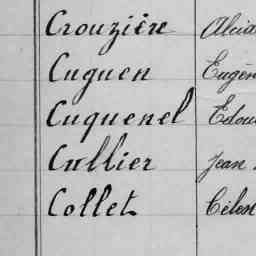 Crouzière Alcia
Cuguen Eugèn
Cuquenel Edou
Cullier Jean
Collet Céles